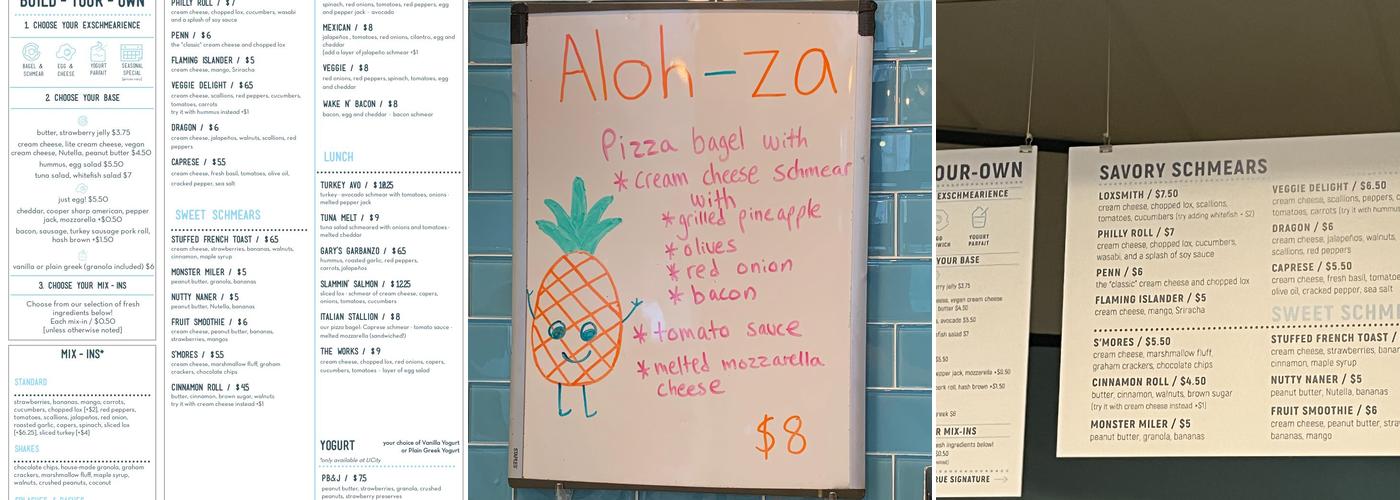 BUILD - YOUR - OWN
1. CHOOSE YOUR EXSCHMEARIENCE
BAGEL & SCHMEAR
EGG & CHEESE
YOGURT PARFAIT
SEASONAL SPECIAL
2. CHOOSE YOUR BASE
butter, strawberry jelly $3.75
cream cheese, lite cream cheese, vegan
cream cheese, Nutella, peanut butter $4.50
hummus, egg salad $5.50
tuna salad, whitefish salad $7
just egg! $5.50
cheddar, cooper sharp american, pepper
jack, mozzarella +$0.50
bacon, sausage, turkey sausage pork roll,
hash brown +$1.50
vanilla or plain greek (granola included) $6
3. CHOOSE YOUR MIX-INS
Choose from our selection of fresh
ingredients below!
Each mix-in / $0.50
[unless otherwise noted]
MIX-INS*
STANDARD
strawberries, bananas, mango, carrots,
cucumbers, chopped lox [+$2], red peppers,
tomatoes, scallions, jalapeños, red onion,
roasted garlic, capers, spinach, sliced lox
[+$6.25], sliced turkey [+$4]
SHAKES
chocolate chips, house-made granola, graham
crackers, marshmallow fluff, maple syrup,
walnuts, crushed peanuts, coconut
PHILLY ROLL / $7
cream cheese, chopped lox, cucumbers, wasabi
and a splash of soy sauce
PENN / $6
the "classic" cream cheese and chopped lox
FLAMING ISLANDER / $5
cream cheese, mango, Sriracha
VEGGIE DELIGHT / $6.5
cream cheese, scallions, red peppers, cucumbers,
tomatoes, carrots
try it with hummus instead +$1
DRAGON / $6
cream cheese, jalapeños, walnuts, scallions, red
peppers
CAPRESE / $5.5
cream cheese, fresh basil, tomatoes, olive oil,
cracked pepper, sea salt
SWEET SCHMEARS
STUFFED FRENCH TOAST / $6.5
cream cheese, strawberries, bananas, walnuts,
cinnamon, maple syrup
MONSTER MILER / $5
peanut butter, granola, bananas
NUTTY NANER / $5
peanut butter, Nutella, bananas
FRUIT SMOOTHIE / $6
cream cheese, peanut butter, bananas,
strawberries, mangos
S'MORES / $5.5
cream cheese, marshmallow fluff, graham
crackers, chocolate chips
CINNAMON ROLL / $4.5
butter, cinnamon, brown sugar, walnuts
try it with cream cheese instead +$1
spinach, red onions, tomatoes, red peppers, egg
and pepper jack - avocado
MEXICAN / $8
jalapeños, tomatoes, red onions, cilantro, egg and
cheddar
[add a layer of jalapeño schmear +$1]
VEGGIE / $8
red onions, red peppers, spinach, tomatoes, egg
and cheddar
WAKE N' BACON / $8
bacon, egg and cheddar - bacon schmear
LUNCH
TURKEY AVO / $10.25
turkey - avocado schmear with tomatoes, onions -
melted pepper jack
TUNA MELT / $9
tuna salad schmeared with onions and tomatoes -
melted cheddar
GARY'S GARBANZO / $6.5
hummus, roasted garlic, red peppers,
carrots, jalapeños
SLAMMIN' SALMON / $12.25
sliced lox - schmear of cream cheese, capers,
onions, tomatoes, cucumbers
ITALIAN STALLION / $8
our pizza bagel: Caprese schmear - tomato sauce -
melted mozzarella (sandwiched)
THE WORKS / $9
cream cheese, chopped lox, red onions, capers,
cucumbers, tomatoes - layer of egg salad
YOGURT
your choice of Vanilla Yogurt
or Plain Greek Yogurt
*only available at UCity
PB&J / $7.5
peanut butter, strawberries, granola, crushed
peanuts, strawberry preserves
Aloh-za
Pizza bagel with
* cream cheese schmear
with
* grilled pineapple
* olives
* red onion
* bacon
* tomato sauce
* melted mozzarella
cheese
$8
OUR-OWN
EXSCHMEARIENCE
YOGURT
PARFAIT
YOUR BASE
R MIX-INS
esh ingredients below!
RUE SIGNATURE →
SAVORY SCHMEARS
LOXSMITH / $7.50
cream cheese, chopped lox, scallions,
tomatoes, cucumbers (try adding whitefish + $2)
PHILLY ROLL / $7
cream cheese, chopped lox, cucumbers,
wasabi, and a splash of soy sauce
PENN / $6
the "classic" cream cheese and chopped lox
FLAMING ISLANDER / $5
cream cheese, mango, Sriracha
S'MORES / $5.50
cream cheese, marshmallow fluff,
graham crackers, chocolate chips
CINNAMON ROLL / $4.50
butter, cinnamon, walnuts, brown sugar
(try it with cream cheese instead +$1)
MONSTER MILER / $5
peanut butter, granola, bananas
VEGGIE DELIGHT / $6.50
cream cheese, scallions, peppers, c
tomatoes, carrots (try it with hummus
DRAGON / $6
cream cheese, jalapeños, walnuts,
scallions, red peppers
CAPRESE / $5.50
cream cheese, fresh basil, tomatoes
olive oil, cracked pepper, sea salt
SWEET SCHM
STUFFED FRENCH TOAST /
cream cheese, strawberries, banan
cinnamon, maple syrup
NUTTY NANER / $5
peanut butter, Nutella, bananas
FRUIT SMOOTHIE / $6
cream cheese, peanut butter, stra
bananas, mango